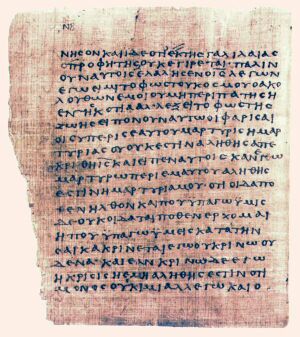 ΝϚ
ΝΗϹΟΝ ΚΑΙ ΙΔΕ ΟΤΙ ΕΚ ΤΗϹ ΓΑΛΙΛΑΙΑϹ
Ο ΠΡΟΦΗΤΗϹ ΟΥΚ ΕΓΕΙΡΕΤΑΙ ΠΑΛΙΝ
ΟΥΝ ΑΥΤΟΙϹ ΕΛΑΛΗϹΕΝ Ο ΙϹ ΛΕΓΩΝ
ΕΓΩ ΕΙΜΙ ΤΟ ΦΩϹ ΤΟΥ ΚΟϹΜΟΥ Ο ΑΚΟ
ΛΟΥΘΩΝ ΕΜΟΙ ΟΥ ΜΗ ΠΕΡΙΠΑΤΗϹΗ
ΕΝ ΤΗ ϹΚΟΤΙΑ ΑΛΛ ΕΞΕΙ ΤΟ ΦΩϹ ΤΗϹ
ΖΩΗϹ ΕΙΠΟΝ ΟΥΝ ΑΥΤΩ ΟΙ ΦΑΡΙϹΑΙ
ΟΙ ϹΥ ΠΕΡΙ ϹΕΑΥΤΟΥ ΜΑΡΤΥΡΙϹ Η ΜΑΡ
ΤΥΡΙΑ ϹΟΥ ΟΥΚ ΕϹΤΙΝ ΑΛΗΘΗϹ ΑΠΕ
ΚΡΙΘΗ ΙϹ ΚΑΙ ΕΙΠΕΝ ΑΥΤΟΙϹ ΚΑΝ ΕΓΩ
ΜΑΡΤΥΡΩ ΠΕΡΙ ΕΜΑΥΤΟΥ ΑΛΗΘΗϹ
ΕϹΤΙΝ Η ΜΑΡΤΥΡΙΑ ΜΟΥ ΟΤΙ ΟΙΔΑ ΠΟ
ΘΕΝ ΗΛΘΟΝ ΚΑΙ ΠΟΥ ΥΠΑΓΩ ΥΜΙϹ
ΔΕ ΟΥΚ ΟΙΔΑΤΑΙ ΠΟΘΕΝ ΕΡΧΟΜΑΙ
Η ΠΟΥ ΥΠΑΓΩ ΥΜΕΙϹ ΚΑΤΑ ΤΗΝ
ϹΑΡΚΑ ΚΡΙΝΕΤΑΙ ΕΓΩ ΟΥ ΚΡΙΝΩ ΟΥ
ΔΕΝΑ ΚΑΙ ΕΑΝ ΚΡΙΝΩ ΔΕ ΕΓΩ
Η ΚΡΙϹΙϹ Η ΕΜΗ ΑΛΗΘΗϹ ΕϹΤΙΝ ΟΤΙ
ΜΟΝΟϹ ΟΥΚ ΕΙΜΙ ΑΛΛ ΕΓΩ ΚΑΙ Ο